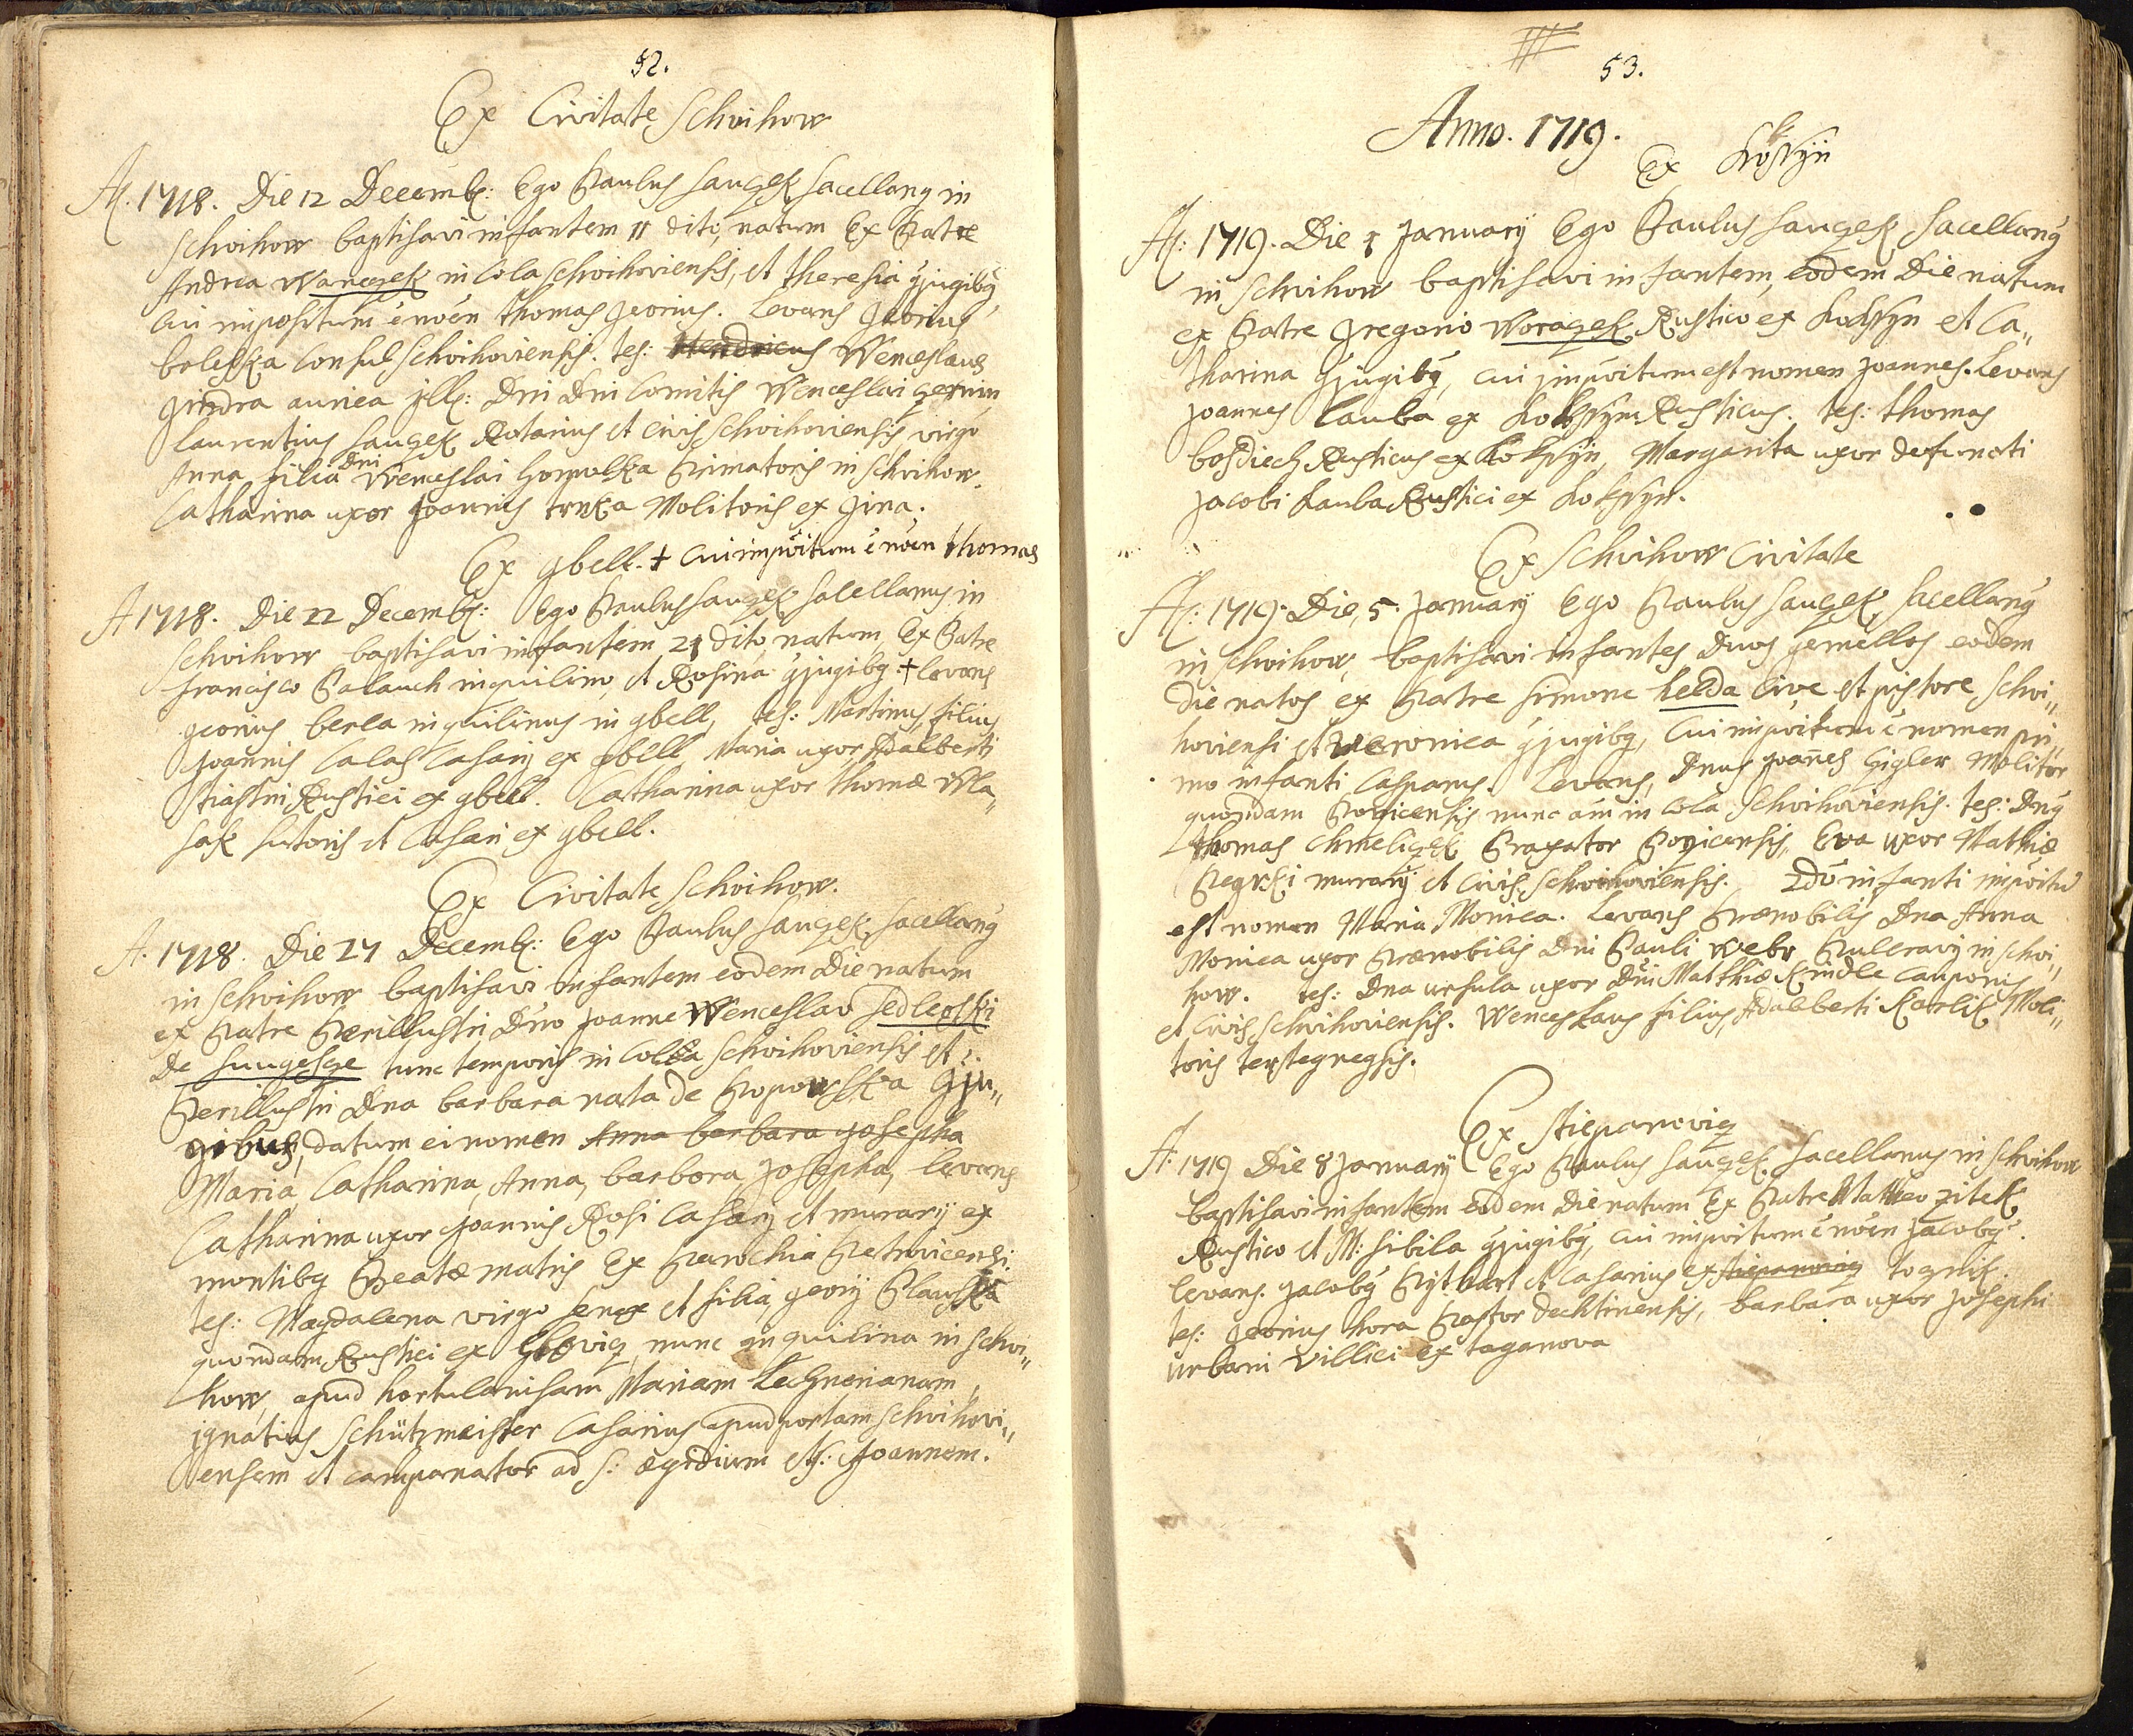 52.
Ex Civitate Schvihow
A: 1718. Die 12 Decemb: Ego Paulus Sauczek Sacellang in
Schvihow baptisavi infantem 11 dito, natum Ex Patre
Andrea Wanczek incola Schvihoviensis, et Theresia gjugibg,
cui impositum e noen Thomas Georius. Levans Georius
boleska Consul Schvihoviensis. tes: Hendricus Wenceslaus
Jindra auriea jll: Dni Dni Comitis Wenceslai Czernin,
Laurentius Sauczek Notarius et Civis Schvihoviensis virgo
Anna filia Dni Wenceslai Hompolka Primatoris in Schvihow.
Catharina uxor Joannis trnka Molitoris ex Jina.
Ex gbell. + cui impoitum e noen Thomas
A 1718. Die 22 Decemb: Ego Paulus Sauczek Sacellanus in
Schvihow baptisavi infantem 21 dito natum, Ex Patre
Francisco Palauch inquilino, et Rosina gjugibg + Levans
georius berla inquilinus in gbell, tes: Martinus filius
Joannis Calas Casarij ex gbell, Maria uxor Adalberti
Stiastni Rustici ex gbell. Catharina uxor Thomæ Wla„
sak sutoris et Casari ex gbell.
Ex Civitate Schvihow.
A. 1718. Die 27 Decemb: Ego Paulus Sauczek, Sacellang
in Schvihow baptisavi infantem eodem Die natum
ex Patre Perillustri Dno Joanne Wenceslao Sedleczki
De tunc temporis in Schvihoviensis et
Perillustri Dna barbara nata de Gju„
gibus, datum ei nomen Anna barbara Josepha
Maria, Catharina, Anna, barbora, Josepha, levans
Catharina uxor Joannis Rosi Casarij et murarij ex
montibg Beatæ matris Ex Parochia Petrovicensi.
tes: Magdalena virgo senex et filia georij
quondam Rustici ex nunc inquilina in Schvi„
how, apud hortulanisam Mariam
ignatius Schützmeister Casarius apud portam Schvihovi„
ensem et campanator ad S: ægidium et S: Joannem.
53.
Anno. 1719.
Ex
A: 1719. Die 1 January Ego Paulus Sauczek Sacellang
in Schvihow baptisavi infantem, eodem Die natum
ex Patre Gregorio Woraczek Rustico ex Kokssyn et Ca„
tharina gjugibg, cui impoitum est nomen Joannes. Levans
Joannes Cauba ex Kokssyn Rusticus. tes: Thomas
bosdiech Rusticus ex Kokssyn, Margarita uxor defuncti
Jacobi Kauba Rustici ex Kokssyn.
Ex Schvihow Civitate
A: 1719. Die, 5. January Ego Paulus Sauczek, Sacellang
in Schvihow, baptisavi infantes Duos gemellos eodem
die natos ex Patre Simone helda Cive et pistore Schvi„
hoviensi et Veronica gjugibg, cui impoitum e nomen pri„
mo infanti Casparus. Levans, Dnus Joanes Gigler Molitor
quondam nunc am incola Schvihoviensis. tes: Dng
Thomas Chmeliczek Eva uxor Mathiæ
murarij et Civis Schvihoviensis. 2do infanti impoitu
est nomen Maria Monica. Levans Prænobilis Dna Anna
Monica uxor Prænobilis Dni Pauli Webr in Schvi„
how. tes: Dna Ursula uxor Dni Matthiæ Kindle cauponis
et Civis Schvihoviensis. Wenceslaus filius Adalberti Karlik Moli„
toris
Ex Stiepanovicz
A: 1719 Die 8 January Ego Paulus Sauczek Sacellanus in Schvihow
baptisavi infantem eodem Die natum Ex Patre Matheo zitek
Rustico et M: Sibila gjugibg, cui impoitum e noen Jacobg.
Levans. Jacobg et Casarius ex Stiepanovicz tocznik.
tes: Georius hora Pastor dechtinensis, barbara uxor Josephi
Urbani Villici ex taganova